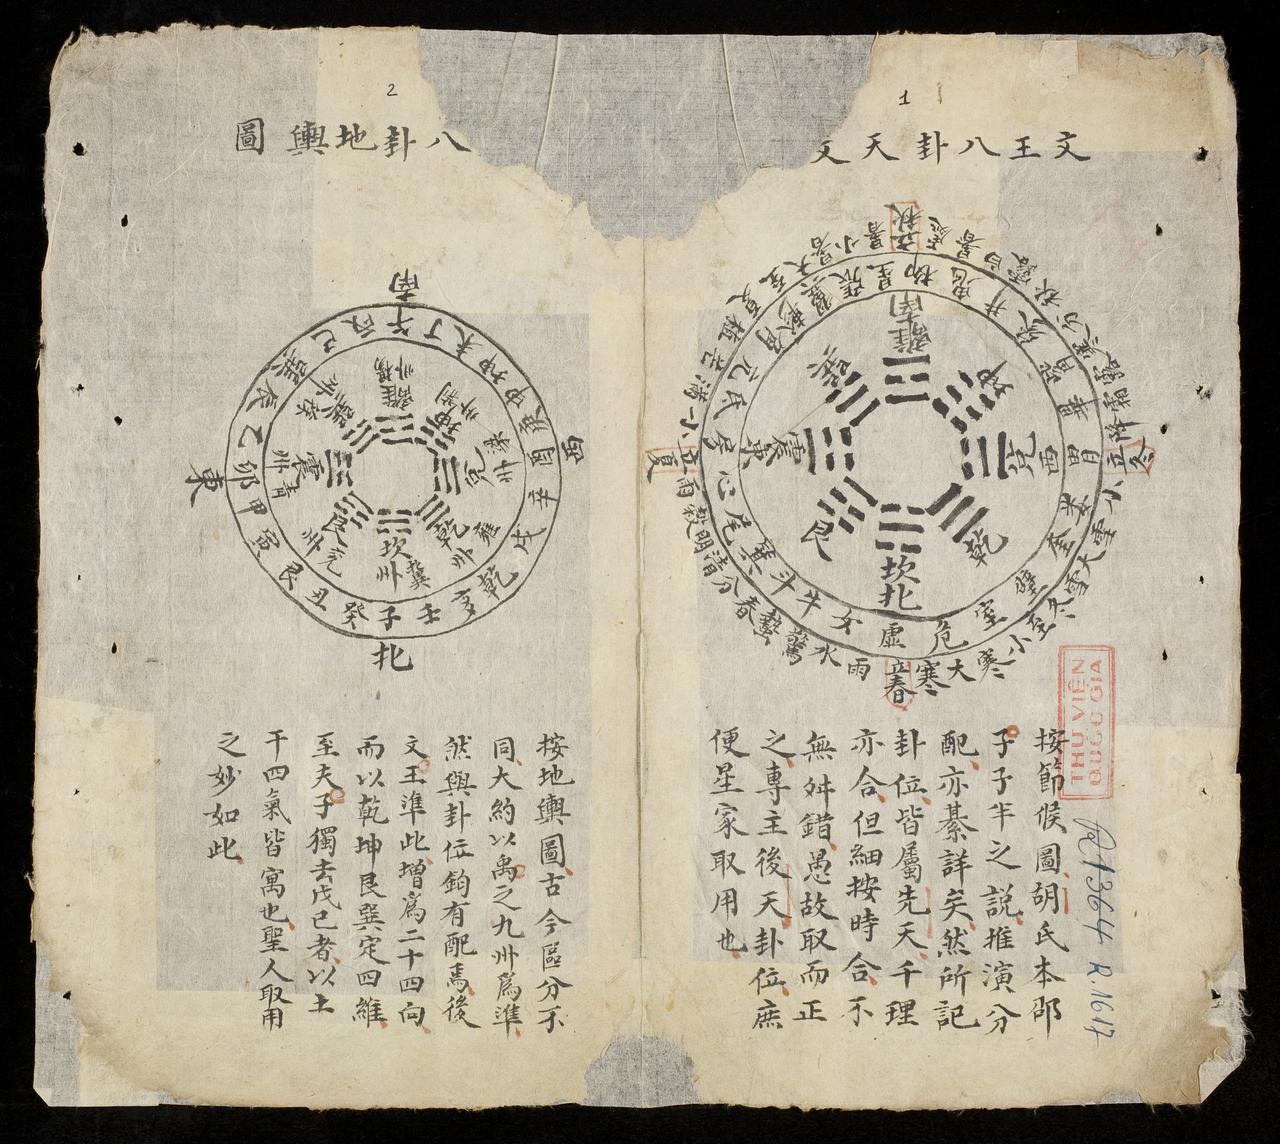 1
文王八卦天文
立春 雨水 驚蟄 春分 清明 穀雨 立夏 小滿 芒種 夏至 小暑 大暑 立秋 處暑 白露 秋分 寒露 霜降 立冬 小雪 大雪 冬至 小寒 大寒
虛 女 牛 斗 箕 尾 心 房 氐 亢 角 軫 翼 張 星 柳 鬼 井 參 觜 畢 胃 婁 奎 壁 室 危
南 離
坤
西 兌
乾
坎 北
艮
東 震
巽
按節候圖胡氏本邵
子子半之說推演分
配亦綦詳矣然所記
卦位皆屬先天千理
亦合但細按時合不
無舛錯愚故取而正
之專主後天卦位庶
便星家取用也
THƯ VIỆN
QUỐC GIA
R.1617
2
八卦地輿圖
南
西
北
東
午 丁 未 坤 申 庚 酉 辛 戌 乾 亥 壬 子 癸 丑 艮 寅 甲 卯 乙 辰 巽 巳 丙
離 揚州
坤 荆州
兌 梁州
乾 雍州
坎 冀州
艮 兗州
震 青州
巽 徐州
按地輿圖古今區分不
同大約以禹之九州爲準
然與卦位鈞有配焉後
文王準此增爲二十四向
而以乾坤艮巽定四維
至夫子獨去戊己者以土
于四氣皆寓也聖人取用
之妙如此